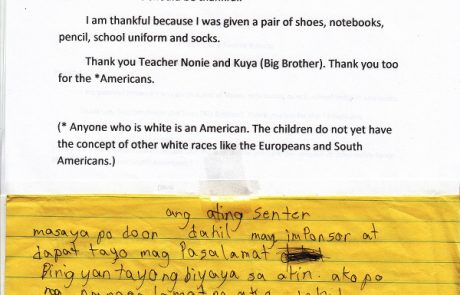 I am thankful because I was given a pair of shoes, notebooks,
pencil, school uniform and socks.
Thank you Teacher Nonie and Kuya (Big Brother). Thank you too
for the *Americans.
(* Anyone who is white is an American. The children do not yet have
the concept of other white races like the Europeans and South
Americans.)
ang ating senter
masaya po doon dahil may imponsor at
dapat tayo mag Pasalamat
Bing yan tayong biyaya sa atin. ako po